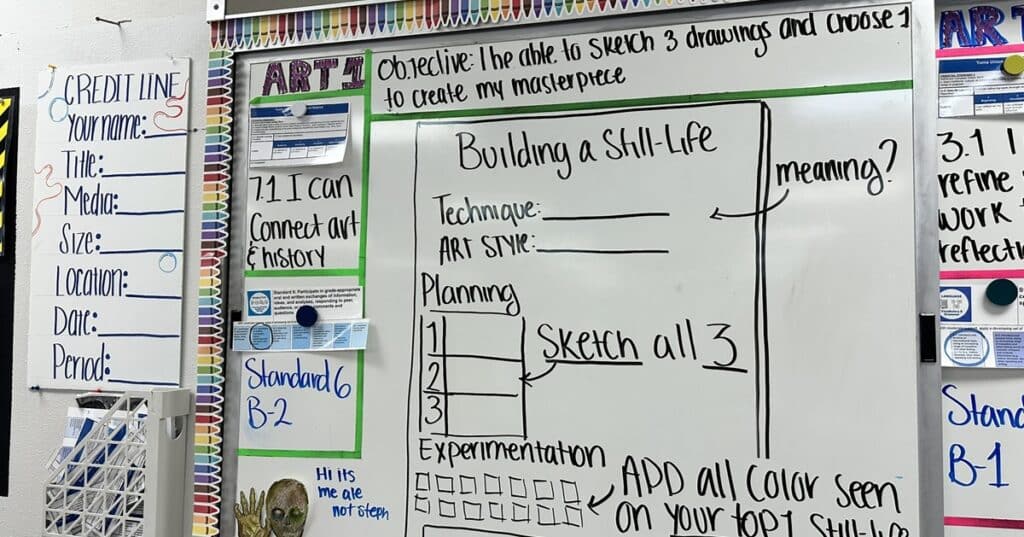 CREDIT LINE
Your name:
Title:
Media:
Size:
Location:
Date:
Period:
ART 1
7.1 I can
Connect art
& history
Standard 6
B-2
Hi its
me ale
not steph
Objective: I be able to sketch 3 drawings and choose 1
to create my masterpiece
Building a Still-Life
Technique:
ART STYLE:
meaning?
Planning
1
2
3
Sketch all 3
Experimentation
ADD all color seen
on your top 1 still-life
ART
3.1 I
refine
work
reflecti
Stand
B-1